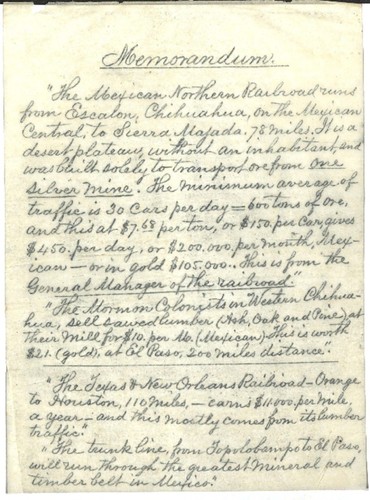 Memorandum.
"The Mexican Northern Railroad runs
from Escalon, Chihuahua, on the Mexican
Central, to Sierra Mojada. 78 miles. It is a
desert plateau, without an inhabitant, and
was built solely to transport ore from one
silver mine. The minimum average of
traffic is 30 cars per day = 600 tons of ore,
and this at $7.68 per ton, or $150. per car, gives
$450. per day, or $200.000. per month, Mex-
ican — or in gold $105.000. This is from the
General Manager of the railroad."
"The Mormon Colonists in Western Chihua-
hua, sell sawed lumber (Ash, Oak and Pine) at
their Mill for $10. per M. (Mexican) This is worth
$21. (gold), at El Paso, 200 miles distance".
"The Texas & New Orleans Railroad — Orange
to Houston, 110 miles, — earns $11.000 per mile,
a year — and this mostly comes from its lumber
traffic."
"The trunk line, from Topolobampo to El Paso,
will run through the greatest mineral and
timber belt in Mexico."